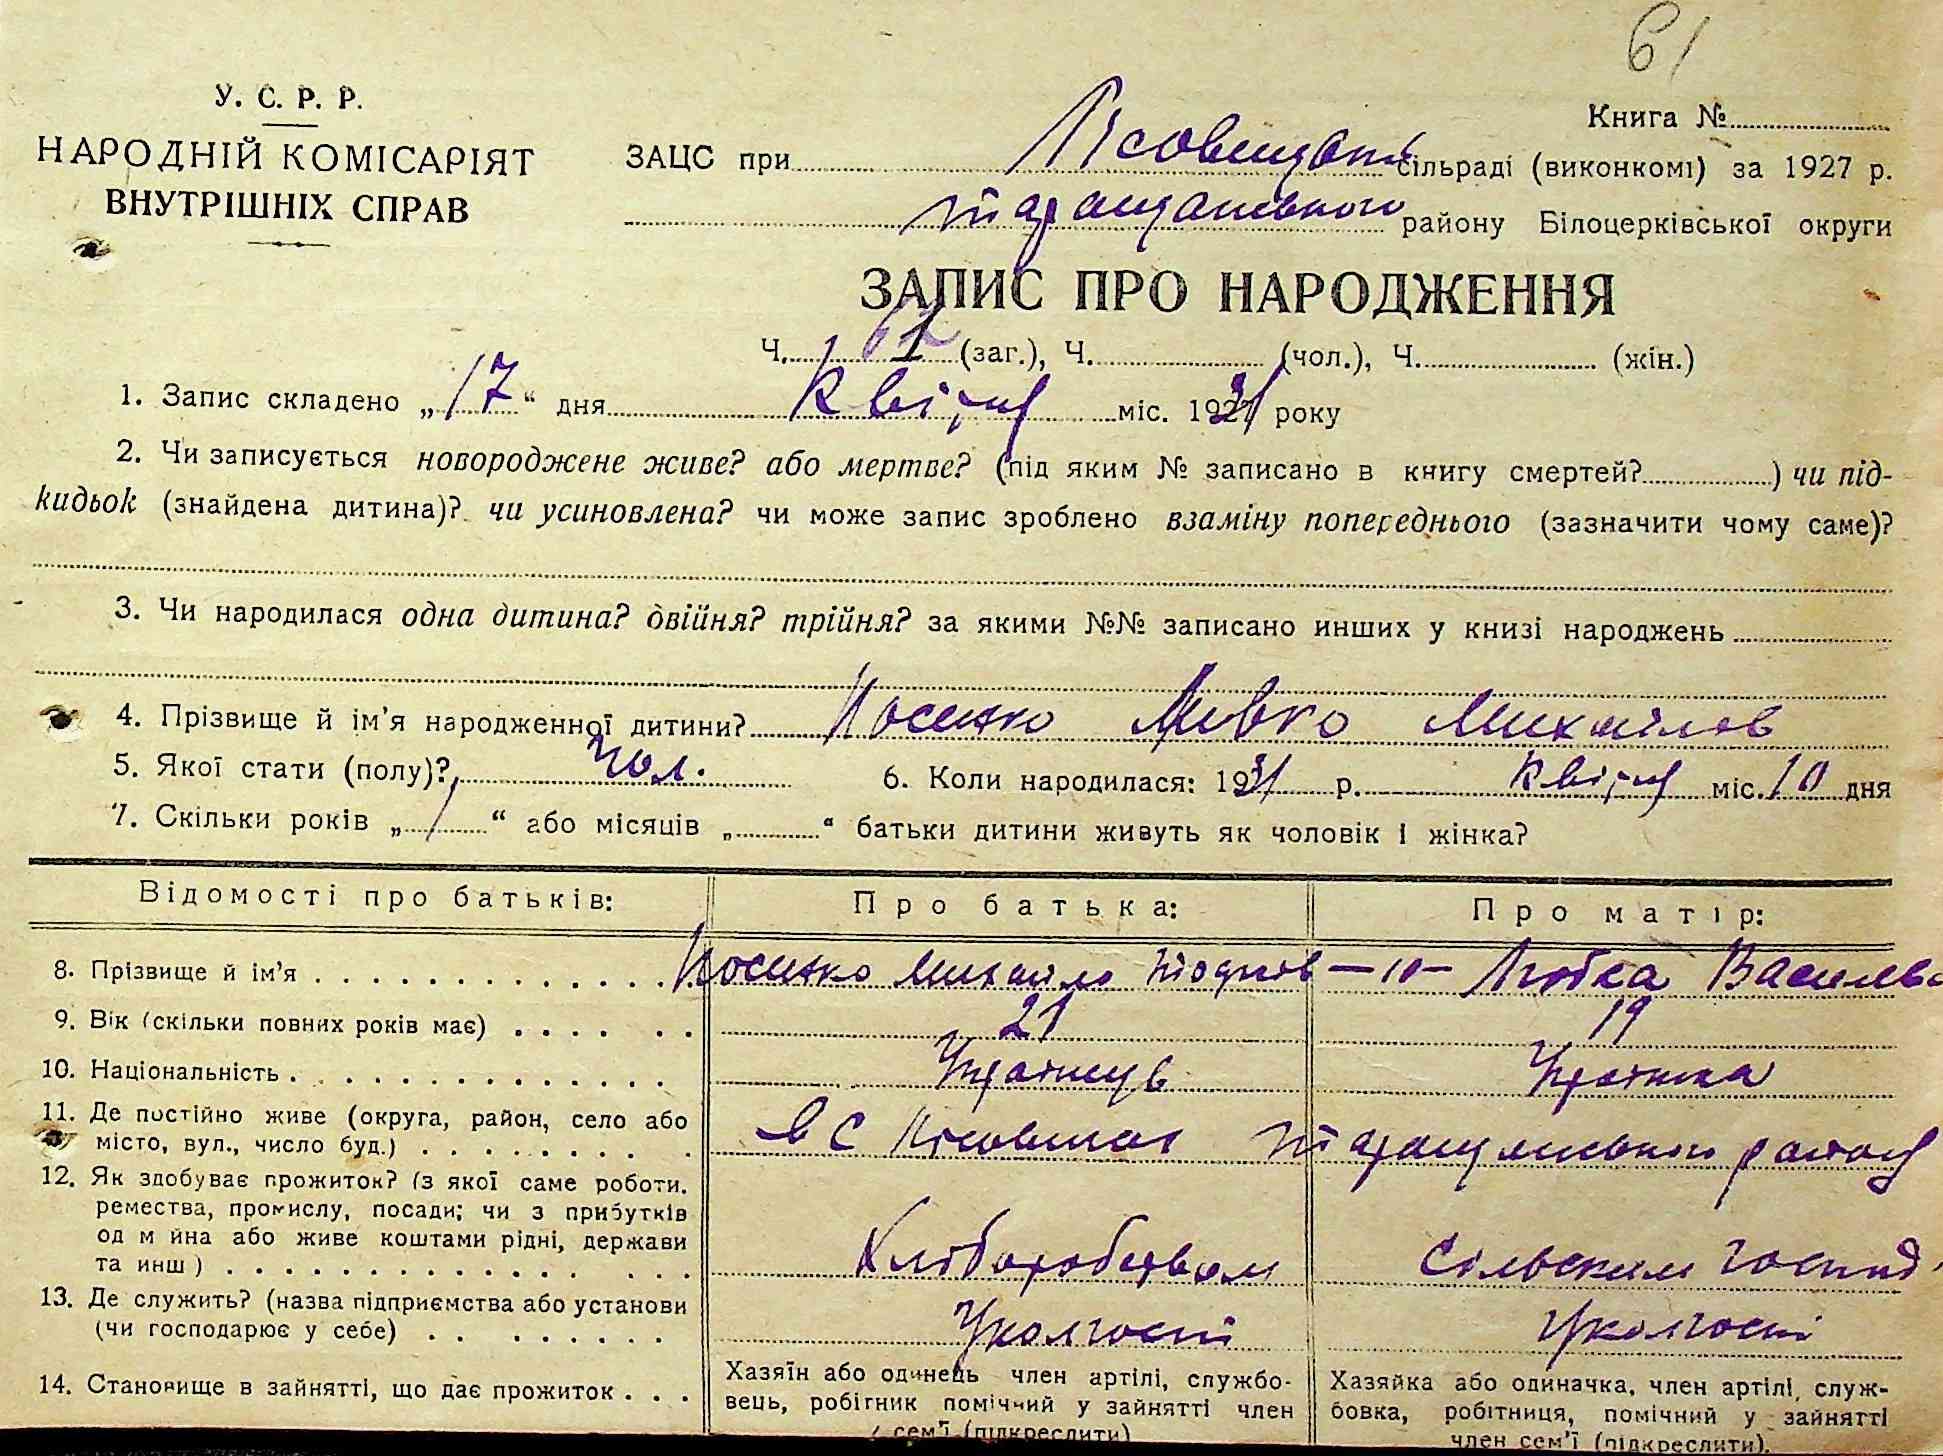 61
У. С. Р. Р.
НАРОДНІЙ КОМІСАРІЯТ
ВНУТРІШНІХ СПРАВ
Книга №
ЗАЦС при Лісовицькі сільраді (виконкомі) за 1927 р.
таращанського району Білоцерківської округи
ЗАПИС ПРО НАРОДЖЕННЯ
Ч. (заг.), Ч. (чол.), Ч. (жін.)
1. Запис складено „17“ дня квітня міс. 1931 року
2. Чи записується новороджене живе? або мертве? (під яким № записано в книгу смертей? ) чи під-
кидьок (знайдена дитина)? чи усиновлена? чи може запис зроблено взаміну попереднього (зазначити чому саме)?
3. Чи народилася одна дитина? двійня? трійня? за якими №№ записано инших у книзі народжень
4. Прізвище й ім’я народженної дитини? Носенко Михайлов
5. Якої стати (полу)? чол. 6. Коли народилася: 1931 р. квітня міс. 10 дня
7. Скільки років „1“ або місяців „ “ батьки дитини живуть як чоловік і жінка?
Відомості про батьків: Про батька: Про матір:
8. Прізвище й ім’я Носенко Михайло —"— Любка Василів
9. Вік (скільки повних років має) 21 19
10. Національність Українець Українка
11. Де постійно живе (округа, район, село або
місто, вул., число буд.) в с Лісовичах таращанського району
12. Як здобуває прожиток? (з якої саме роботи,
ремества, промислу, посади; чи з прибутків
од м йна або живе коштами рідні, держави
та инш) Хліборобством Сільским господ.
13. Де служить? (назва підприємства або установи
(чи господарює у себе) Уколгоспі Уколгоспі
14. Становище в зайнятті, що дає прожиток
Хазяїн або одинець член артілі, службо-
вець, робігник помічний у зайнятті член
сем’ї (підкреслити)
Хазяйка або одиначка, член артілі, служ-
бовка, робітниця, помічний у зайнятті
член сем’ї (підкреслити).